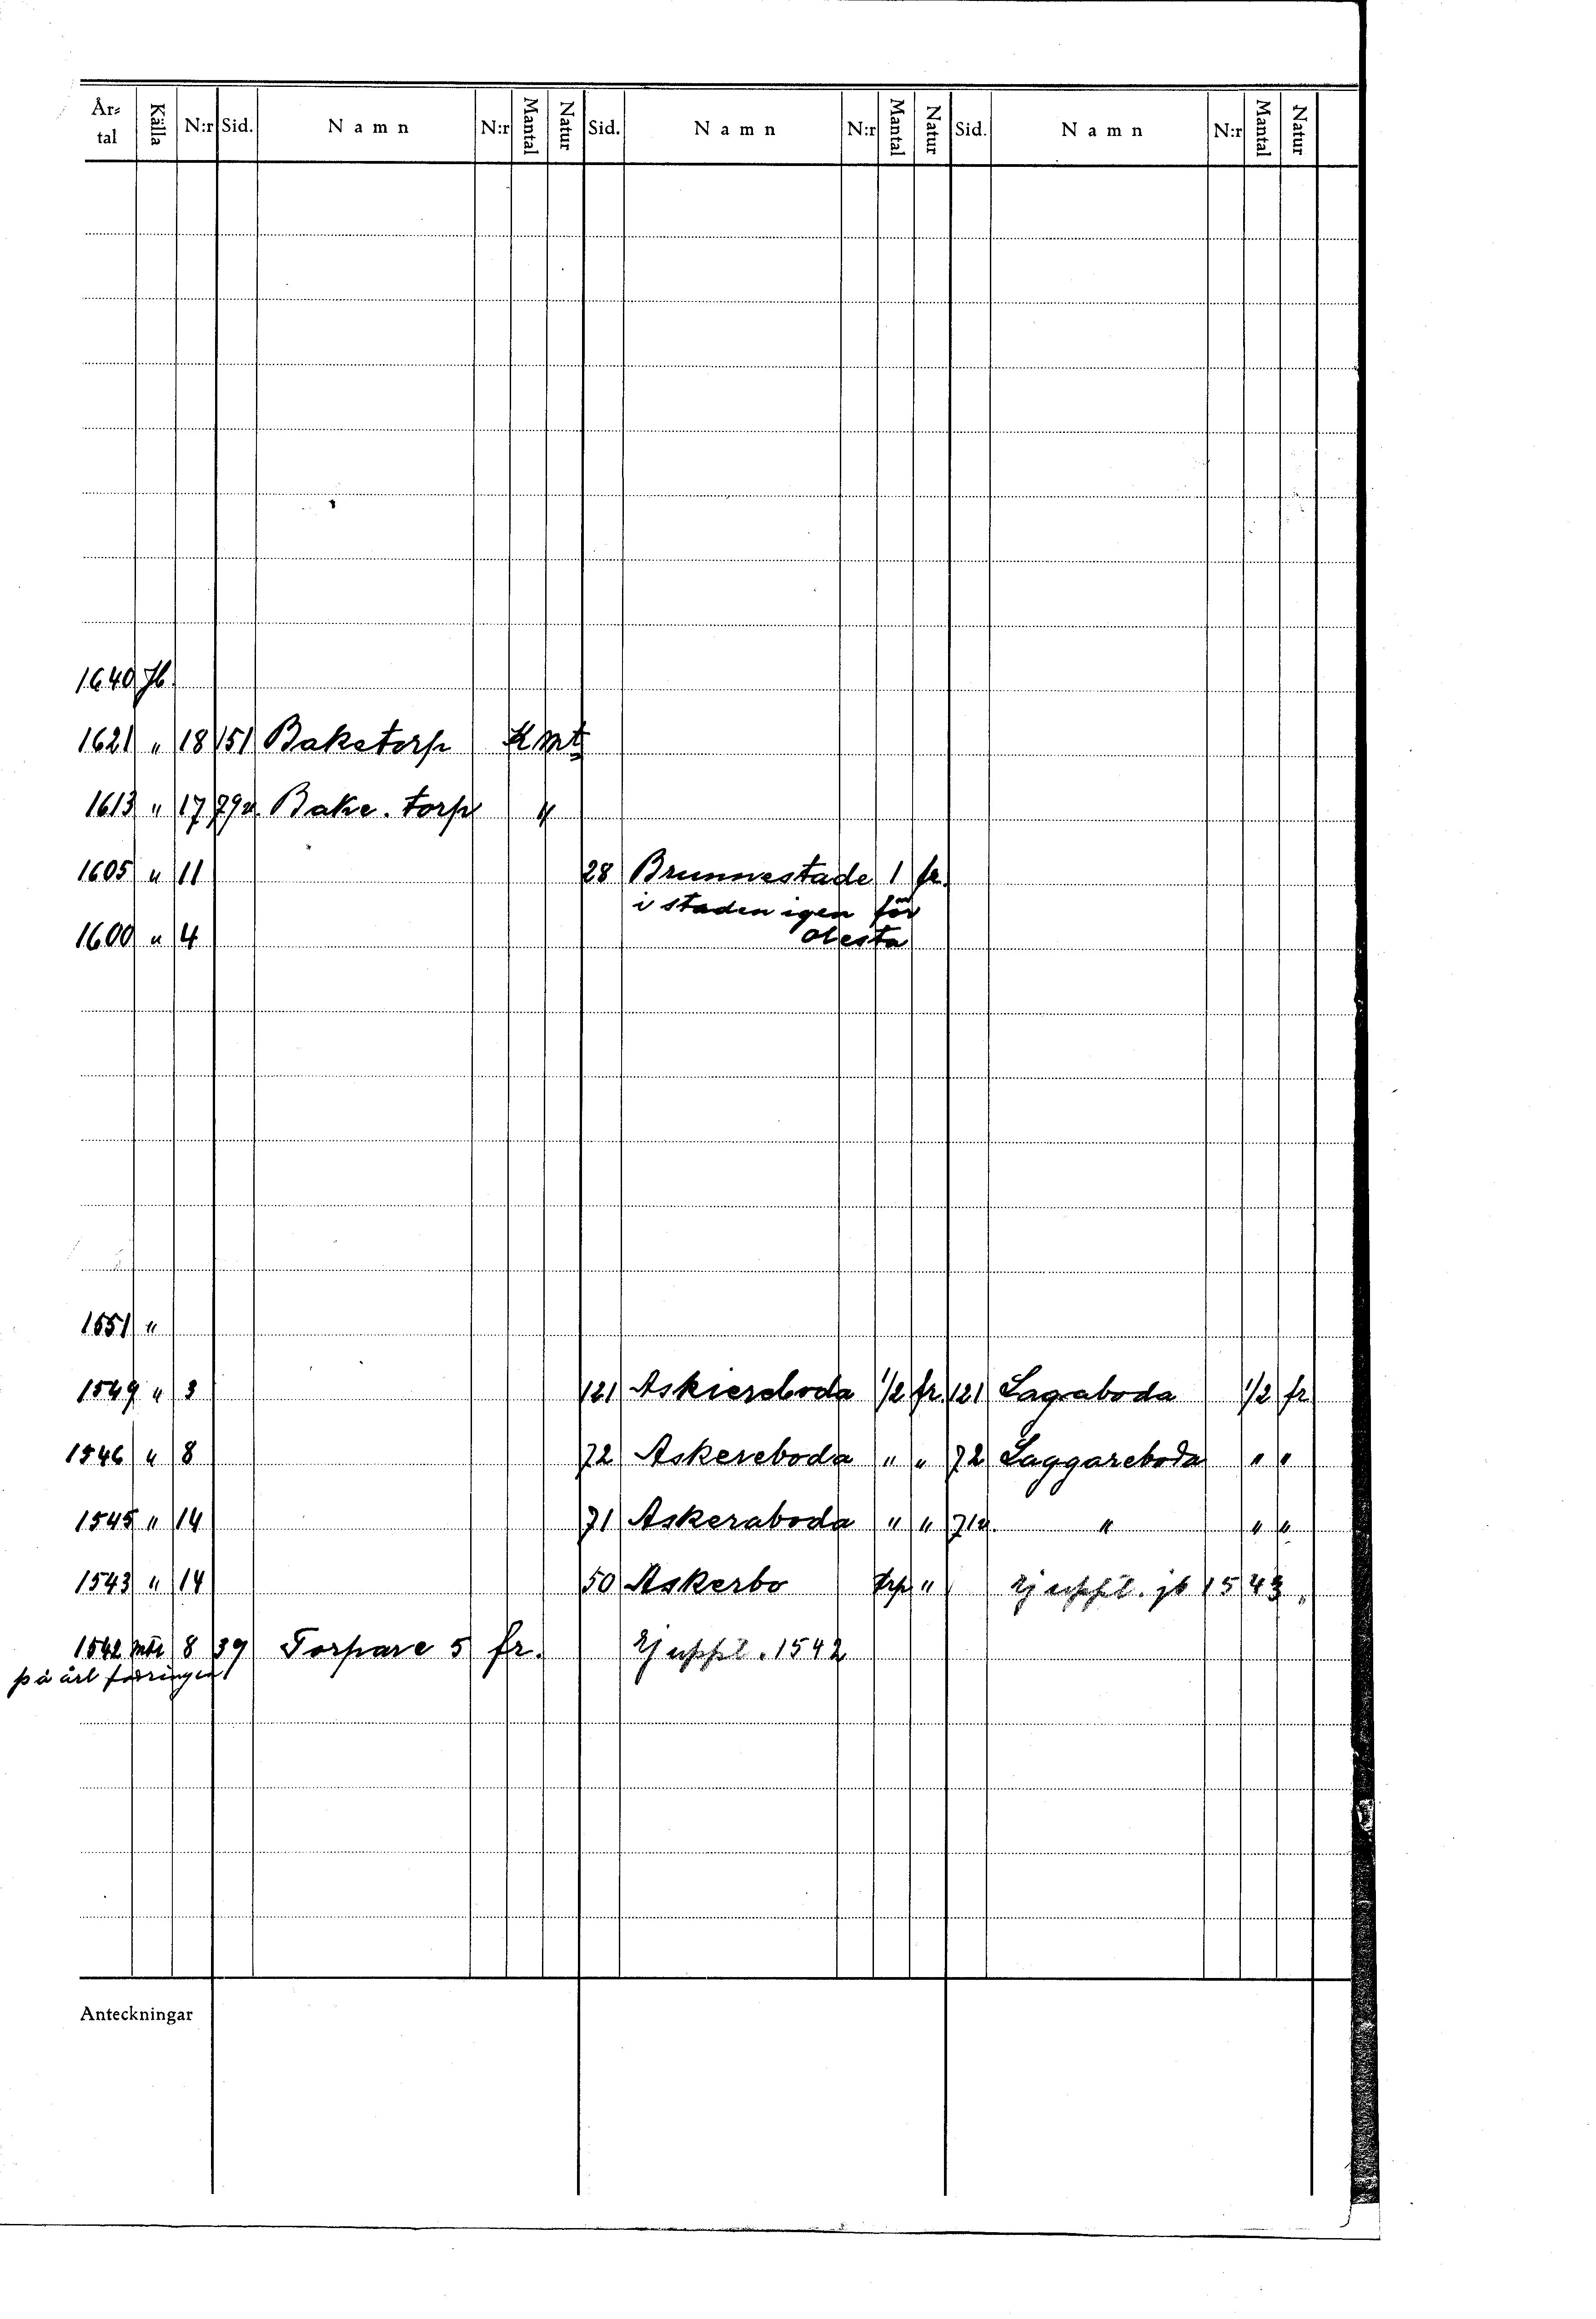 År-tal Källa N:r Sid. Namn N:r Mantal Natur Sid. Namn N:r Mantal Natur Sid. Namn N:r Mantal Natur
1640 Jb.
1621 " 18 151 Baketorp K mt
1613 " 17 79v. Bake. torp "
1605 " 11 28 Brunnestade 1 fr.
i staden igen för
1600 " 4 Olesta
1551 "
1549 " 3 121 Askiereboda 1/2 fr. 121 Lagaboda 1/2 fr
1546 " 8 72 Askereboda " " 72 Laggareboda " "
1545 " 14 71 Askeraboda " " 71v. " " "
1543 " 14 50 Askerbo trp " Ej uppt. jb 1543.
1542 8 39 Torpare 5 fr. Ej uppt. 1542
på årl fodringen
Anteckningar